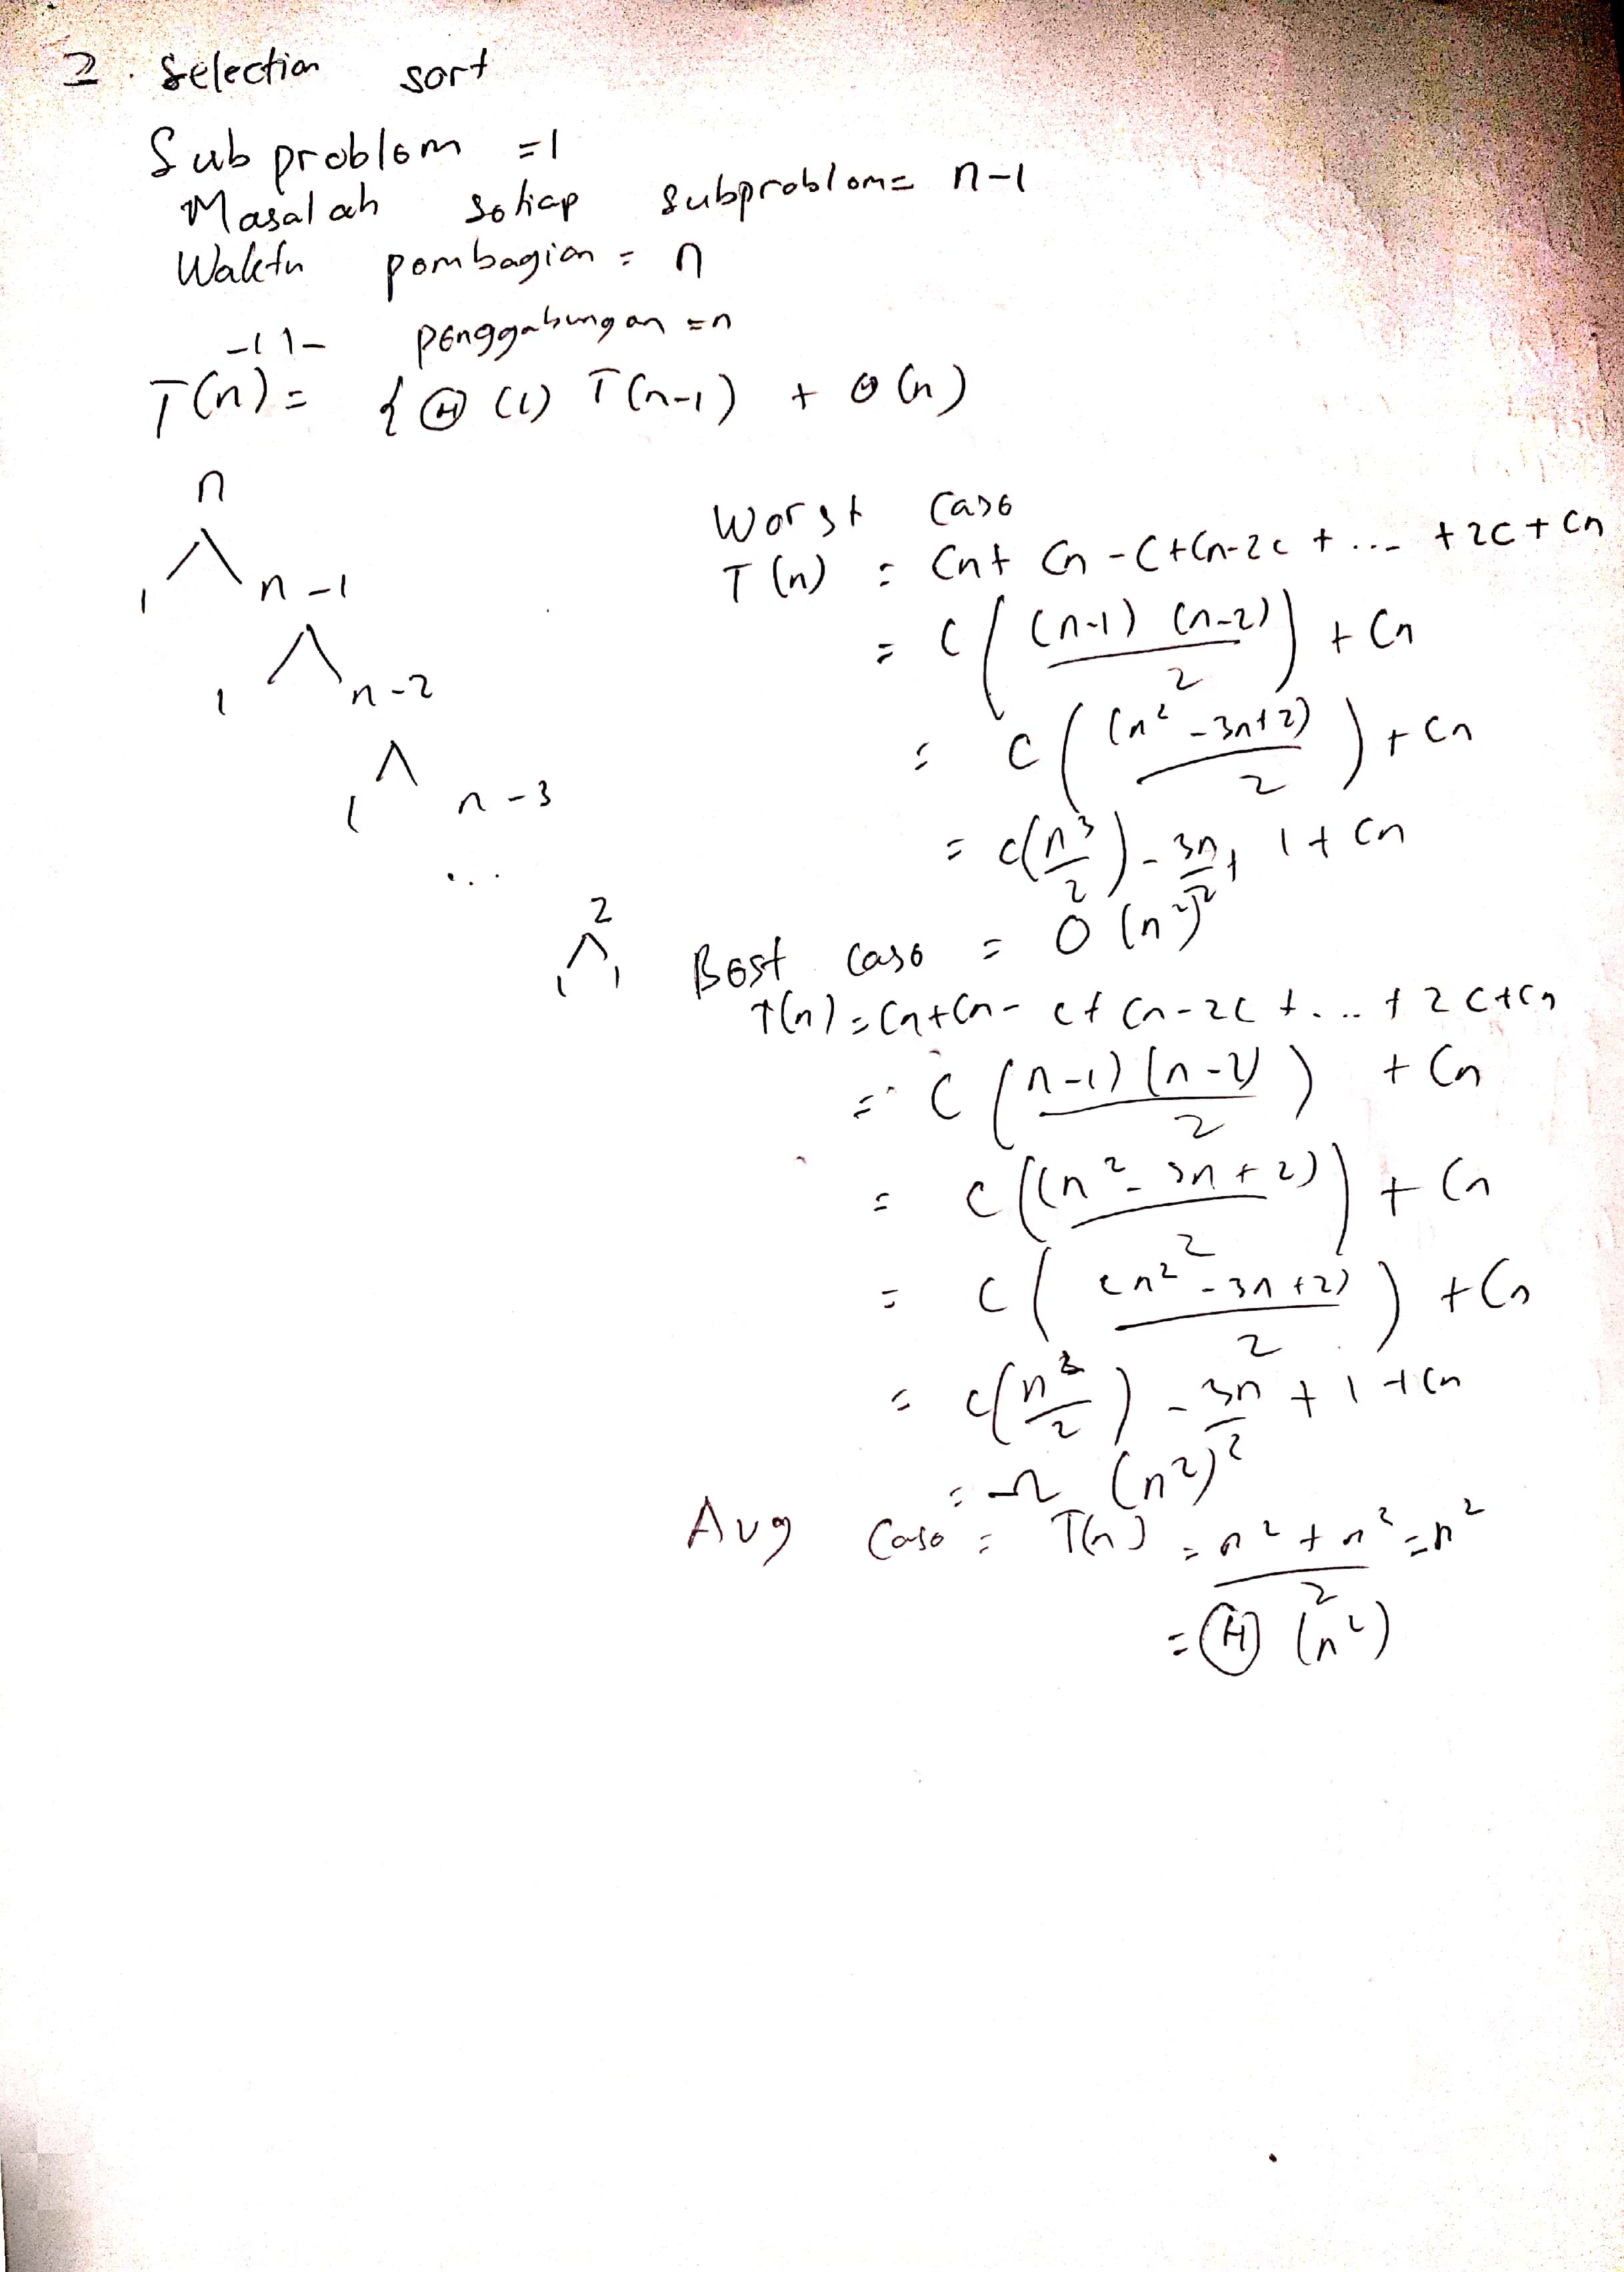 2. Selection sort
Sub problem = 1
Masalah setiap subproblem = n-1
Waktu pembagian = n
-11- penggabungan = n
T(n) = { Θ(1) T(n-1) + Θ(n)
n
1 n-1
1 n-2
1 n-3
...
2
1 1
Worst Case
T(n) = Cn + Cn - C + Cn-2c + ... + 2C + Cn
= C((n-1)(n-2)/2) + Cn
= C((n²-3n+2)/2) + Cn
= c(n²/2) - 3n/2 + 1 + Cn
= O(n²)
Best Case
T(n) = Cn + Cn - c + Cn - 2c + ... + 2C + Cn
= C((n-1)(n-2)/2) + Cn
= C((n²-3n+2)/2) + Cn
= C((n²-3n+2)/2) + Cn
= c(n²/2) - 3n/2 + 1 + Cn
= Ω(n²)
Avg Case = T(n) = n² + n²/2 = n²
= Θ(n²)